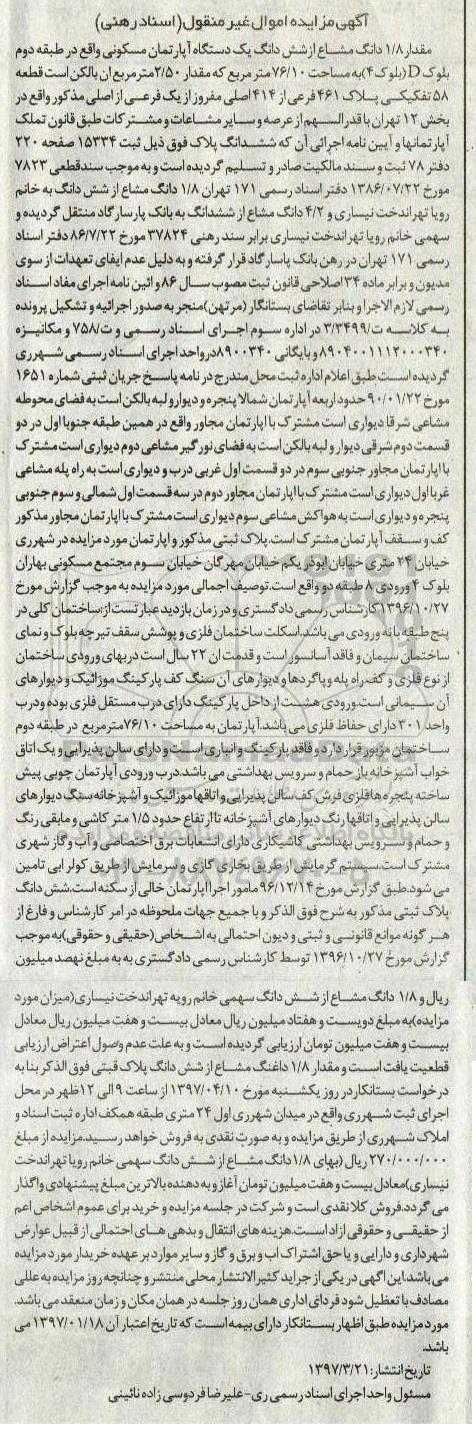 آگهی مزایده اموال غیر منقول (اسناد رهنی)
مقدار ۱/۸ دانگ مشاع از شش دانگ یک دستگاه آپارتمان مسکونی واقع در طبقه دوم
بلوک D(بلوک ۴)به مساحت ۷۶/۱۰ متر مربع که مقدار ۲/۵۰ مترمربع ان بالکن است قطعه
۵۸ تفکیکی پلاک ۴۶۱ فرعی از ۴۱۴ اصلی مفروز از یک فرعی از اصلی مذکور واقع در
بخش ۱۲ تهران با قدرالسهم از عرصه و سایر مشاعات و مشترکات طبق قانون تملک
آپارتمانها و آیین نامه اجرائی آن که ششدانگ پلاک فوق ذیل ثبت ۱۵۳۳۴ صفحه ۲۲۰
دفتر ۷۸ ثبت و سند مالکیت صادر و تسلیم گردیده است و به موجب سندقطعی ۷۸۲۳
مورخ ۱۳۸۶/۰۷/۲۲ دفتر اسناد رسمی ۱۷۱ تهران ۱/۸ دانگ مشاع از شش دانگ به خانم
رویا تهراندخت نیساری و ۴/۲ دانگ مشاع از ششدانگ به بانک پارسارگاد منتقل گردیده و
سهمی خانم رویا تهراندخت نیساری برابر سند رهنی ۳۷۸۲۴ مورخ ۸۶/۷/۲۲ دفتر اسناد
رسمی ۱۷۱ تهران در رهن بانک پاسارگاد قرار گرفته و به دلیل عدم ایفای تعهدات از سوی
مدیون و برابر ماده ۳۴ اصلاحی قانون ثبت مصوب سال ۸۶ و ائین نامه اجرای مفاد اسناد
رسمی لازم الاجرا و بنابر تقاضای بستانگار (مرتهن)منجر به صدور اجرائیه و تشکیل پرونده
به کلاسه ت/۳/۳۴۹۹ در اداره سوم اجرای اسناد رسمی و ت/۷۵۸ و مکانیزه
۸۹۰۴۰۰۱۱۱۲۰۰۰۳۴۰ و بایگانی ۸۹۰۰۳۴۰ در واحد اجرای اسناد رسمی شهرری
گردیده است طبق اعلام اداره ثبت محل مندرج در نامه پاسخ جریان ثبتی شماره ۱۶۵۱
مورخ ۹۰/۰۱/۲۲ حدود اربعه آپارتمان شمالا پنجره و دیوار و لبه بالکن است به فضای محوطه
مشاعی شرقا دیواری است مشترک با اپارتمان مجاور واقع در همین طبقه جنوبا اول در دو
قسمت دوم شرقی دیوار و لبه بالکن است به فضای نورگیر مشاعی دوم دیواری است مشترک
با اپارتمان مجاور جنوبی سوم در دو قسمت اول غربی درب و دیواری است به راه پله مشاعی
غربا اول دیواری است مشترک با اپارتمان مجاور دوم در سه قسمت اول شمالی و سوم جنوبی
پنجره و دیواری است به هواکش مشاعی سوم دیواری است مشترک با اپارتمان مجاور مذکور
کف و سقف آپارتمان مشترک است.پلاک ثبتی مذکور و اپارتمان مورد مزایده در شهرری
خیابان ۲۴ متری خیابان ابوذر یکم خیابان مهرگان خیابان سوم مجتمع مسکونی بهاران
بلوک ۴ ورودی ۸ طبقه دو واقع است.توصیف اجمالی مورد مزایده به موجب گزارش مورخ
۱۳۹۶/۱۰/۲۷ کارشناس رسمی دادگستری و در زمان بازدید عبارتست از:ساختمان کلی در
پنج طبقه با نه ورودی می باشد.اسکلت ساختمان فلزی و پوشش سقف تیرچه بلوک و نمای
ساختمان سیمان و فاقد آسانسور است و قدمت ان ۲۲ سال است دربهای ورودی ساختمان
از نوع فلزی و کف راه پله و پاگردها و دیوارهای آن سنگ کف پارکینگ موزائیک و دیوارهای
آن سیمانی است.ورودی هشت از داخل پارکینگ دارای درب مستقل فلزی بوده و درب
واحد ۳۰۱ دارای حفاظ فلزی می باشد.آپارتمان به مساحت ۷۶/۱۰مترمربع در طبقه دوم
ساختمان مزبور قرار دارد و فاقد پارکینگ و انباری است و دارای سالن پذیرایی و یک اتاق
خواب آشپزخانه باز حمام و سرویس بهداشتی می باشد.درب ورودی آپارتمان چوبی پیش
ساخته پنجره ها فلزی فرش کف سالن پذیرایی و اتاقها موزائیک و آشپزخانه سنگ دیوارهای
سالن پذیرایی و اتاقها رنگ دیوارهای آشپزخانه تا ارتفاع حدود ۱/۵ متر کاشی و مابقی رنگ
و حمام و سرویس بهداشتی کاشیکاری دارای انشعابات برق اختصاصی و آب و گاز شهری
مشترک است.سیستم گرمایش از طریق بخاری گازی و سرمایش از طریق کولر ابی تامین
می شود.طبق گزارش مورخ ۹۶/۱۲/۱۴ مامور اجرا اپارتمان خالی از سکنه است.شش دانگ
پلاک ثبتی مذکور به شرح فوق الذکر و با جمیع جهات ملحوظه در امر کارشناس و فارغ از
هر گونه موانع قانونی و ثبتی و دیون احتمالی به اشخاص(حقیقی و حقوقی)به موجب
گزارش مورخ ۱۳۹۶/۱۰/۲۷ توسط کارشناس رسمی دادگستری به به مبلغ نهصد میلیون
ریال و ۱/۸ دانگ مشاع از شش دانگ سهمی خانم رویه تهراندخت نیساری(میزان مورد
مزایده)به مبلغ دویست و هفتاد میلیون ریال معادل بیست و هفت میلیون ریال معادل
بیست و هفت میلیون تومان ارزیابی گردیده است و به علت عدم وصول اعتراض ارزیابی
قطعیت یافت است و مقدار ۱/۸ داغنگ مشاع از شش دانگ پلاک قبتی فوق الذکر بنا به
درخواست بستانکار در روز یکشنبه مورخ ۱۳۹۷/۰۴/۱۰ از ساعت ۹ الی ۱۲ظهر در محل
اجرای ثبت شهرری واقع در میدان شهرری اول ۲۴ متری طبقه همکف اداره ثبت اسناد و
املاک شهرری از طریق مزایده و به صورت نقدی به فروش خواهد رسید.مزایده از مبلغ
۲۷۰/۰۰۰/۰۰۰ ریال (بهای ۱/۸ دانگ مشاع از شش دانگ سهمی خانم رویا تهراندخت
نیساری)معادل بیست و هفت میلیون تومان آغاز و به دهنده بالاترین مبلغ پیشنهادی واگذار
می گردد.فروش کلا نقدی است و شرکت در جلسه مزایده و خرید برای عموم اشخاص اعم
از حقیقی و حقوقی ازاد است.هزینه های انتقال و بدهی های احتمالی از قبیل عوارض
شهرداری و دارایی و یا حق اشتراک اب و برق و گاز و سایر موارد بر عهده خریدار مورد مزایده
می باشد.این اگهی در یکی از جراید کثیرالانتشار محلی منتشر و چنانچه روز مزایده به عللی
مصادف با تعطیل شود فردای اداری همان روز جلسه در همان مکان و زمان منعقد می باشد.
مورد مزایده طبق اظهار بستانکار دارای بیمه است که تاریخ اعتبار آن ۱۳۹۷/۰۱/۱۸ می
باشد.
تاریخ انتشار: ۱۳۹۷/۳/۲۱
مسئول واحد اجرای اسناد رسمی ری-علیرضا فردوسی زاده نائینی